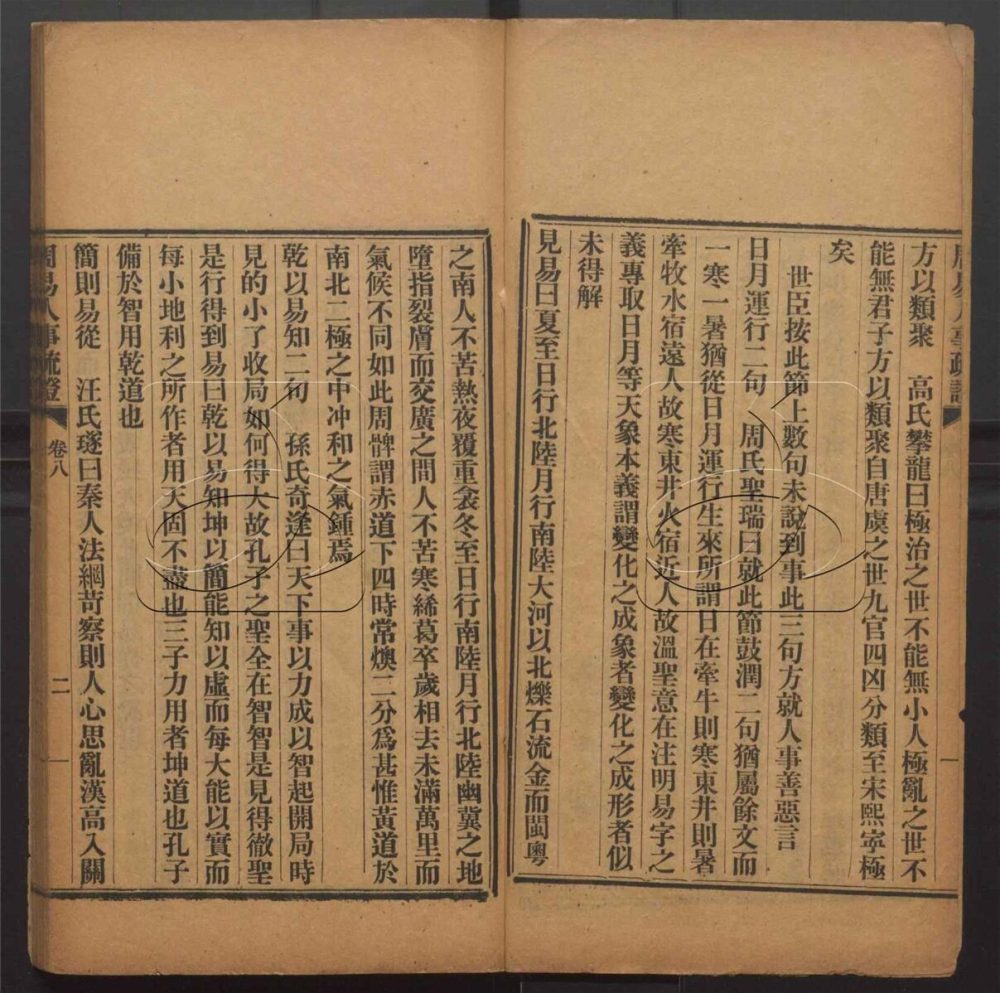 周易人事疏證
一
方以類聚　高氏攀龍曰極治之世不能無小人極亂之世不
能無君子方以類聚自唐虞之世九官四凶分類至宋熙寧極
矣
世臣按此節上數句未說到事此三句方就人事善惡言
日月運行二句　周氏聖瑞曰就此節鼓潤二句猶屬餘文而
一寒一暑猶從日月運行生來所謂日在牽牛則寒東井則暑
牽牧水宿遠人故寒東井火宿近人故溫聖意在注明易字之
義專取日月等天象本義謂變化之成象者變化之成形者似
未得解
見易曰夏至日行北陸月行南陸大河以北爍石流金而閩粵
之南人不苦熱夜覆重衾冬至日行南陸月行北陸幽冀之地
墮指裂膚而交廣之間人不苦寒絺葛卒歲相去未滿萬里而
氣候不同如此周髀謂赤道下四時常燠二分爲甚惟黃道於
南北二極之中冲和之氣鍾焉
乾以易知二句　孫氏奇逢曰天下事以力成以智起開局時
見的小了收局如何得大故孔子之聖全在智智是見得徹聖
是行得到易曰乾以易知坤以簡能知以虛而每大能以實而
每小地利之所作者用天固不盡也三子力用者坤道也孔子
備於智用乾道也
簡則易從　汪氏璲曰秦人法網苛察則人心思亂漢高入關
周易人事疏證
卷八
二